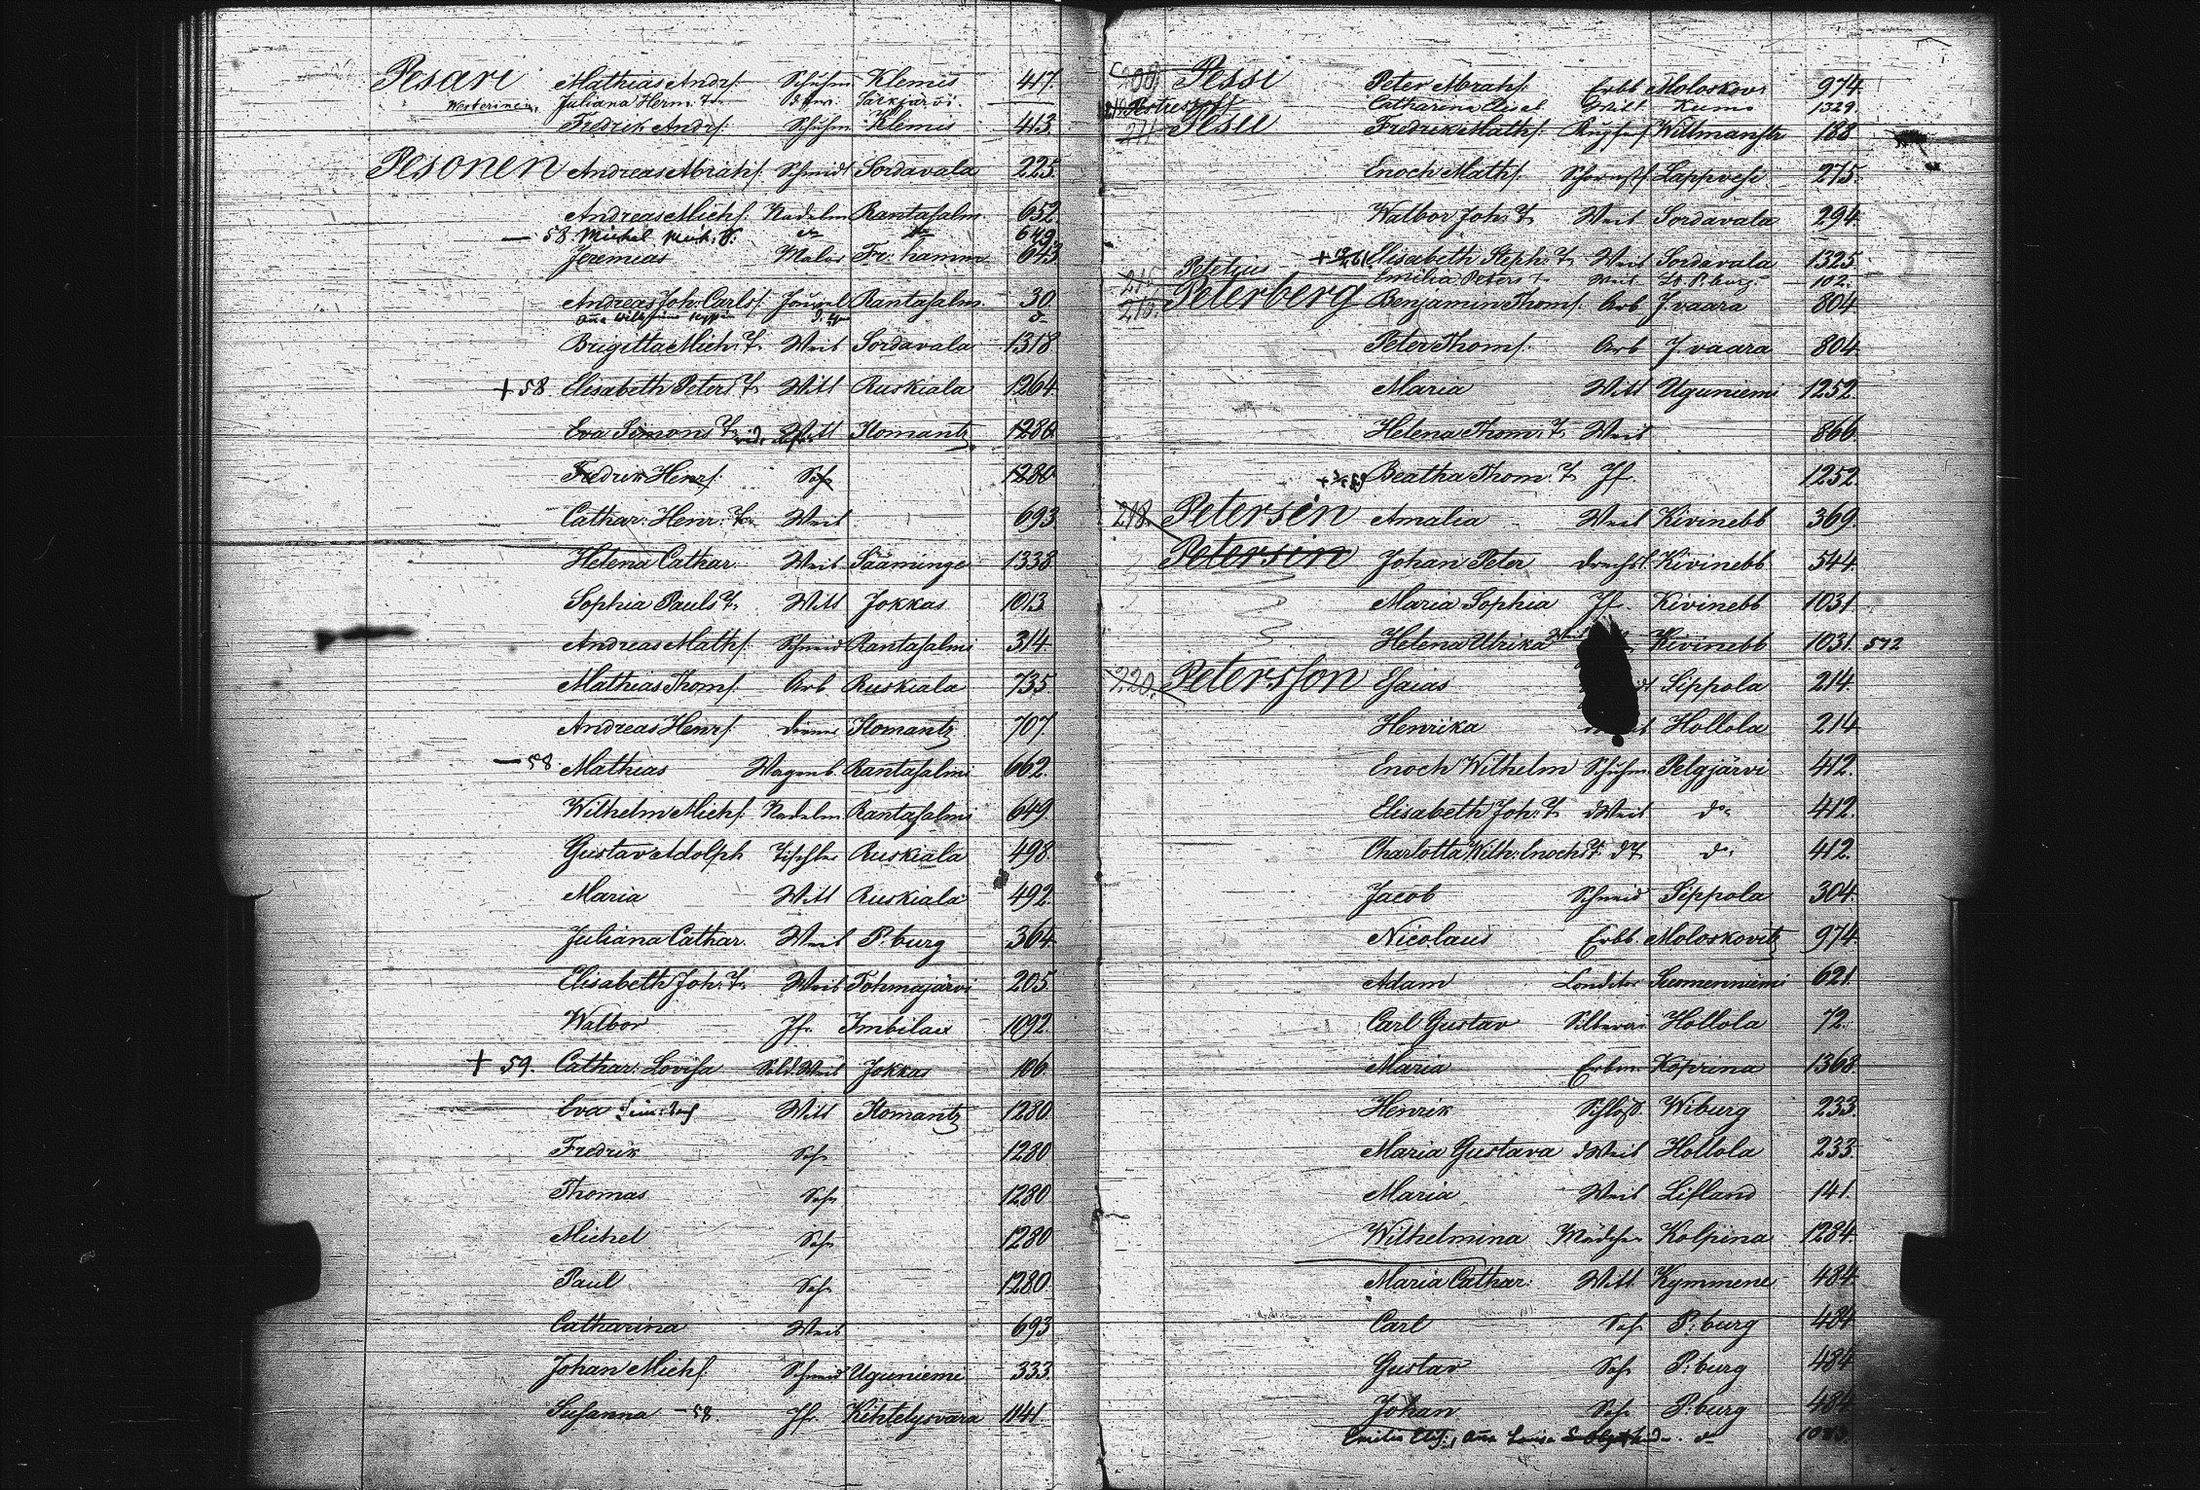 Pesari Mathias Andrs. Schuhm Klemis 417.
Westerinen, Juliana Herm. T. Särkjärvi.
Fredrik Andrs. Schuhm Klemis 413.
Pesonen Andreas Abrahs. Schmidt Sordavala 225.
Andreas Michs. Nadelm Rantasalm. 652.
— 58. Michel Mich. S. 649.
Jeremias Maler Fr: hamm 643
Andreas Joh: Carls. Rantasalm. 30.
Brigitta Mich: T. Weib Sordavala 1318
+ 58. Elisabeth Peters T. Witt Ruskiala 1264.
Eva Simons T. Witt Ilomantz 1280
Fredrik Henrs. Sohn 1280
Cathar: Henr: T. Weib 693
Helena Cathar. Weib Sääminge 1338.
Sophia Pauls T. Witt Jokkas 1013
Andreas Maths. Schmid Rantasalmi 314.
Mathias Thoms. Arb. Ruskiala 735.
Andreas Henrs. Diener Ilomantz 707.
— 58. Mathias Wagenb. Rantasalmi 662.
Wilhelm Michs. Nadelm Rantasalmi 649.
Gustav Adolph Tischler Ruskiala 498.
Maria Witt Ruskiala 492.
Juliana Cathar. Weib P:burg 364.
Elisabeth Joh: T. Weib Tohmajärvi 205.
Walbor Jfr. Imbilax 1092.
+ 59. Cathar: Lovisa Sold. Weib Jokkas 106.
Eva Witt Ilomantz 1280.
Fredrik Sohn 1280
Thomas Sohn 1280
Michel Sohn 1280
Paul Sohn 1280.
Catharina Weib 693
Johan Michs. Schmid Uguniemi 333.
Susanna — 58. Jfr. Kihtelysvara 1141.
Pessi Peter Abrahs. Erbb Moloskovi 974.
Catharina Elisab Witt Kumo 1329.
Pesu Fredrik Maths. Willmanstr 188.
Enoch Maths. Schornstf Lappvesi 275.
Walbor Joh: T. Weib Sordavala 294.
Elisabeth Steph: T. Weib Sordavala 1325.
Emilia Peters T. Weib St. P.burg. 102.
Peterberg Benjamin Thoms. Arb Jvaara 804.
Peter Thoms. Arb Jvaara 804.
Maria Witt Uguniemi 1252.
Helena Thom: T. Weib 866.
Beatha Thom: T. Jf. 1252.
218. Petersen Amalia Weib Kivinebb 369.
Petersin Johan Peter Drechsl Kivinebb 544.
Maria Sophia Jf. Kivinebb 1031.
Helena Ulrika Kivinebb 1031. 572
220. Petersson Esaias Sippola 214.
Henrika Hollola 214
Enoch Wilhelm Schuhm. Pelgjärvi 412.
Elisabeth Joh: T. dWeib do 412.
Charlotta Wilh: Enochs T. dT do 412.
Jacob Schmid Sippola 304.
Nicolaus Erbb. Moloskovitz 974.
Adam Conditor Luemenniemi 621.
Carl Gustav Silberar Hollola 72.
Maria Erbm. Koprina 1368.
Henrik Schloss. Wiburg 233.
Maria Gustava dWeib Hollola 233.
Maria Weib Lifland 141.
Wilhelmina Mädchen Kolpina 1284.
Maria Cathar: Witt Kymmene 484.
Carl Sohn P:burg 484
Gustav Sohn P:burg 484
Johan Sohn P:burg 484